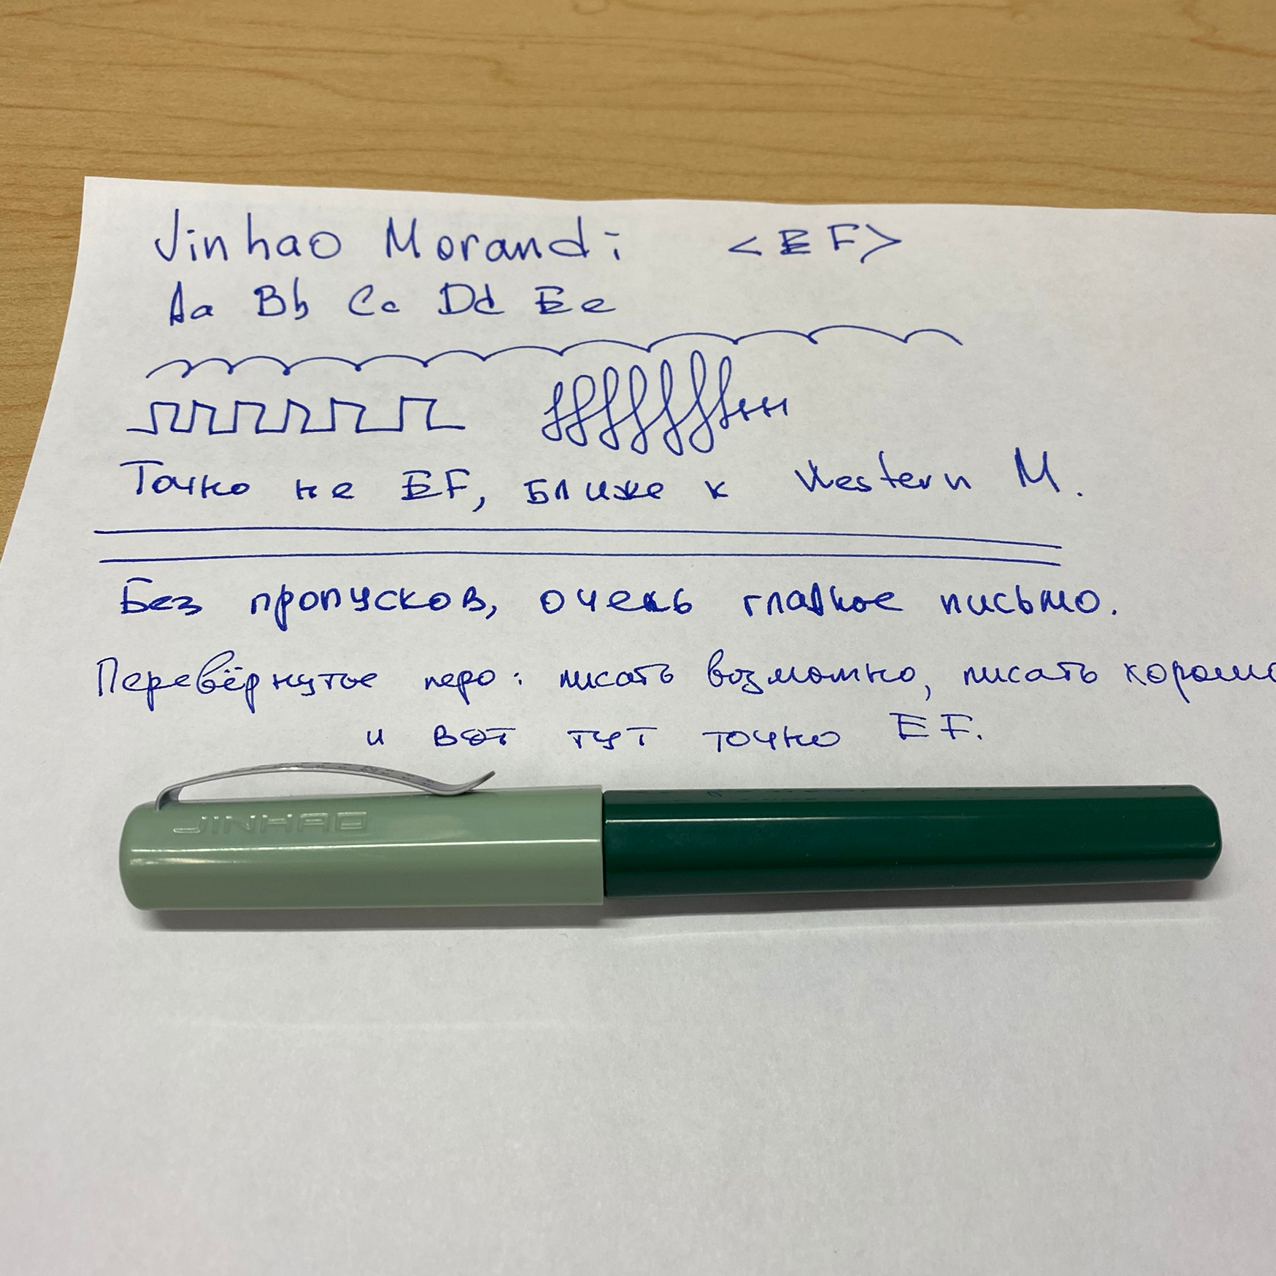 Jinhao Morandi <EF>
Aa Bb Cc Dd Ee
Точно не EF, ближе к Western M.
Без пропусков, очень гладкое письмо.
Перевёрнутое перо: писать возможно, писать хорошо
и вот тут точно EF.
JINHAO